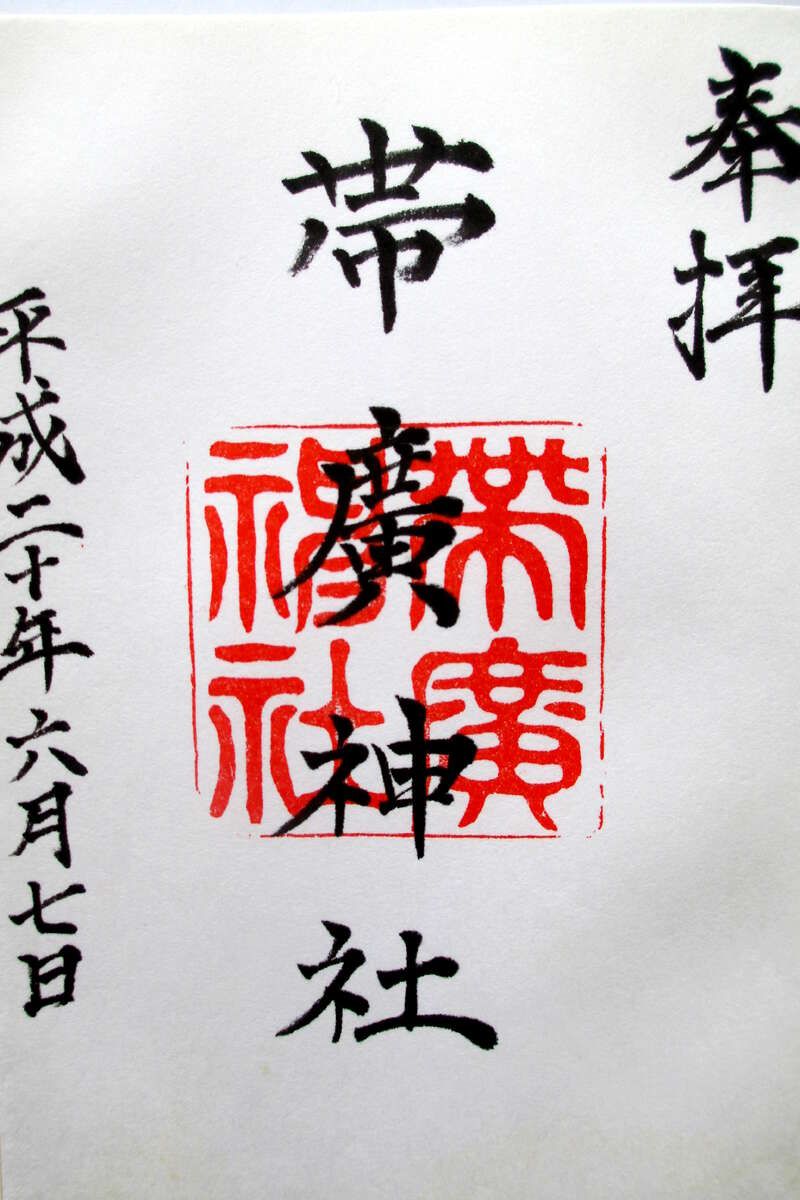 奉拝
帯廣神社
帯廣神社
平成二十年六月七日